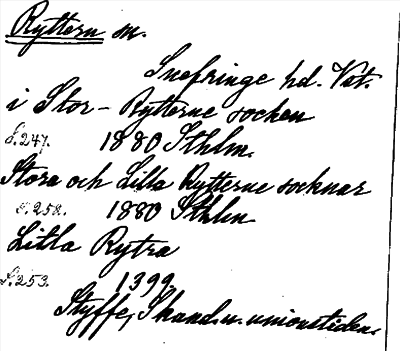 Ryttern sn.
Snefringe hd. Vstm.
i Stor-Rytterne socken
S.247. 1880 Sthlm.
Stora och Lilla Rytterne socknar
S.258. 1880 Sthlm
Litla Rytra
S.253. 1399.
Styffe, Skand. u. unionstiden.